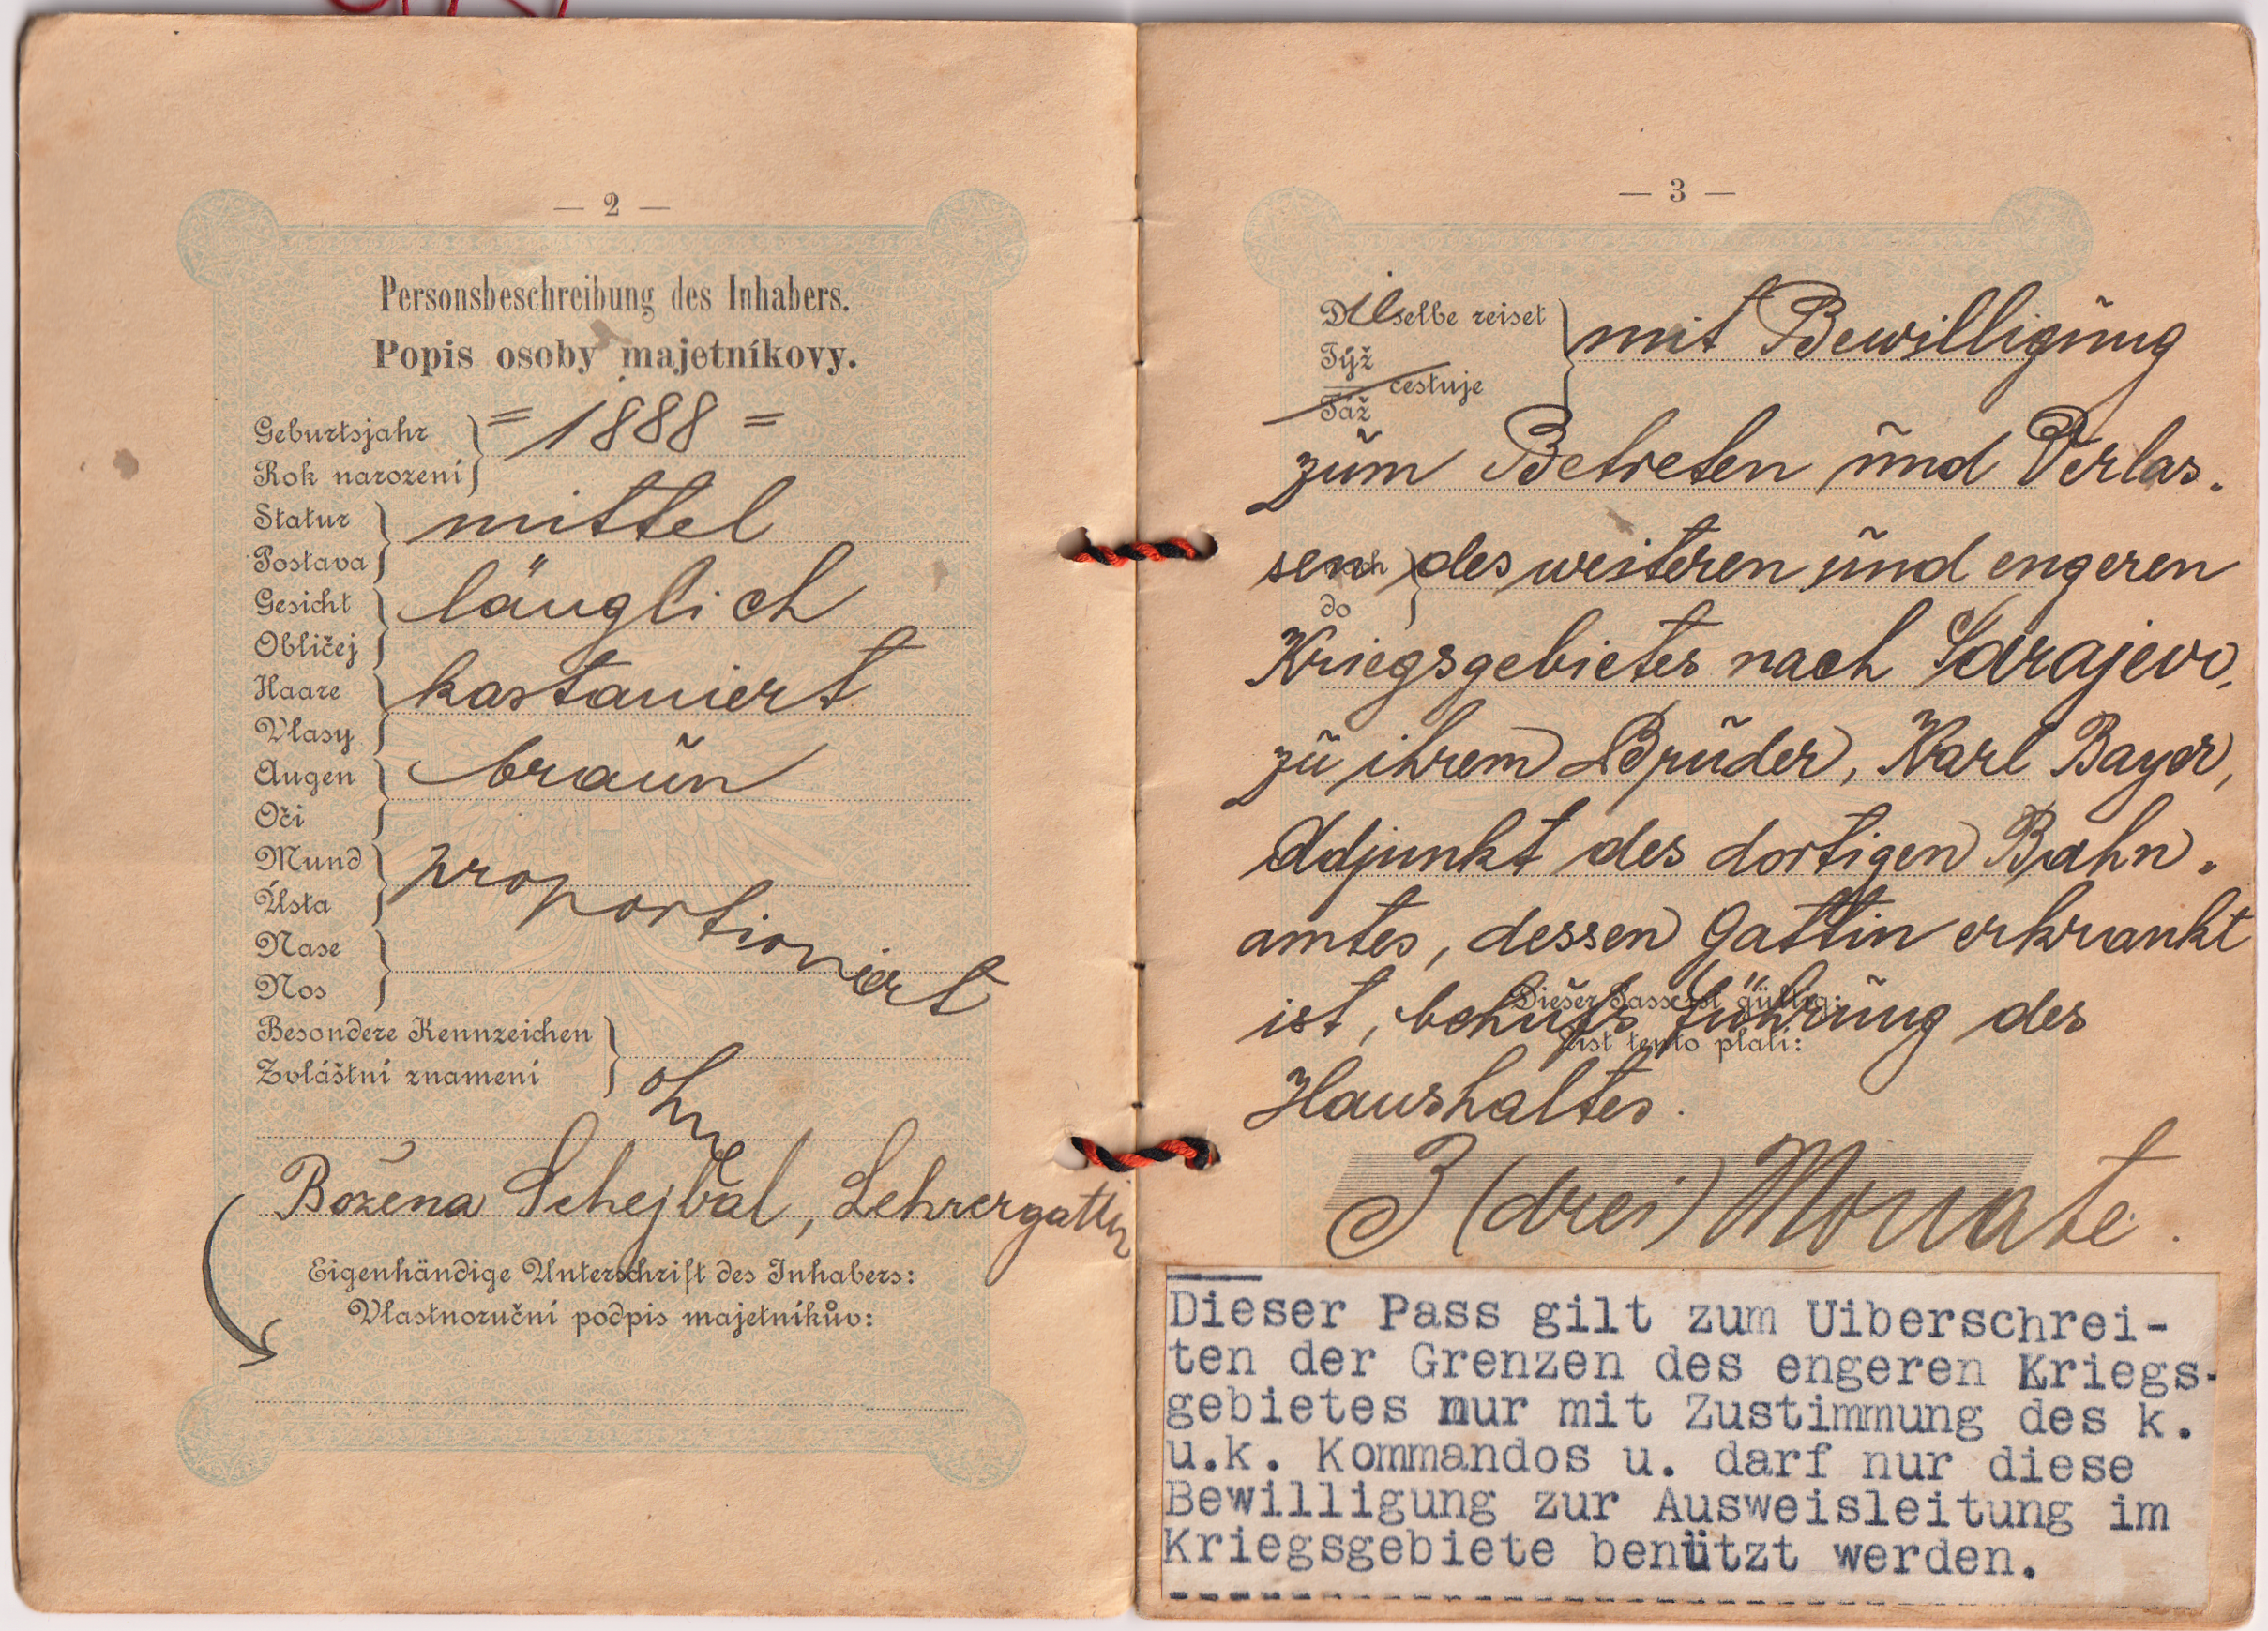 — 2 —
Personsbeschreibung des Inhabers.
Popis osoby majetníkovy.
Geburtsjahr = 1888 =
Rok narození
Statur mittel
Postava
Gesicht länglich
Obličej
Haare kastaniert
Vlasy
Augen braun
Oči
Mund proportioniert
Ústa
Nase
Nos
Besondere Kennzeichen
Zvláštní znamení
ohne
Božena Schejbal, Lehrergattin
Eigenhändige Unterschrift des Inhabers:
Vlastnoruční podpis majetníkův:
— 3 —
Dieselbe reiset mit Bewilligung
Týž
cestuje
Táž
zum Betreten und Verlas-
sen des weiteren und engeren
nach
do
Kriegsgebietes nach Sarajevo,
zu ihrem Bruder, Karl Bayer,
Adjunkt des dortigen Bahn-
amtes, dessen Gattin erkrankt
Dieser Pass ist gültig:
ist, behufs Führung des
List tento platí:
Haushaltes.
3 (drei) Monate.
Dieser Pass gilt zum Uiberschrei-
ten der Grenzen des engeren Kriegs-
gebietes nur mit Zustimmung des k.
u.k. Kommandos u. darf nur diese
Bewilligung zur Ausweisleitung im
Kriegsgebiete benützt werden.